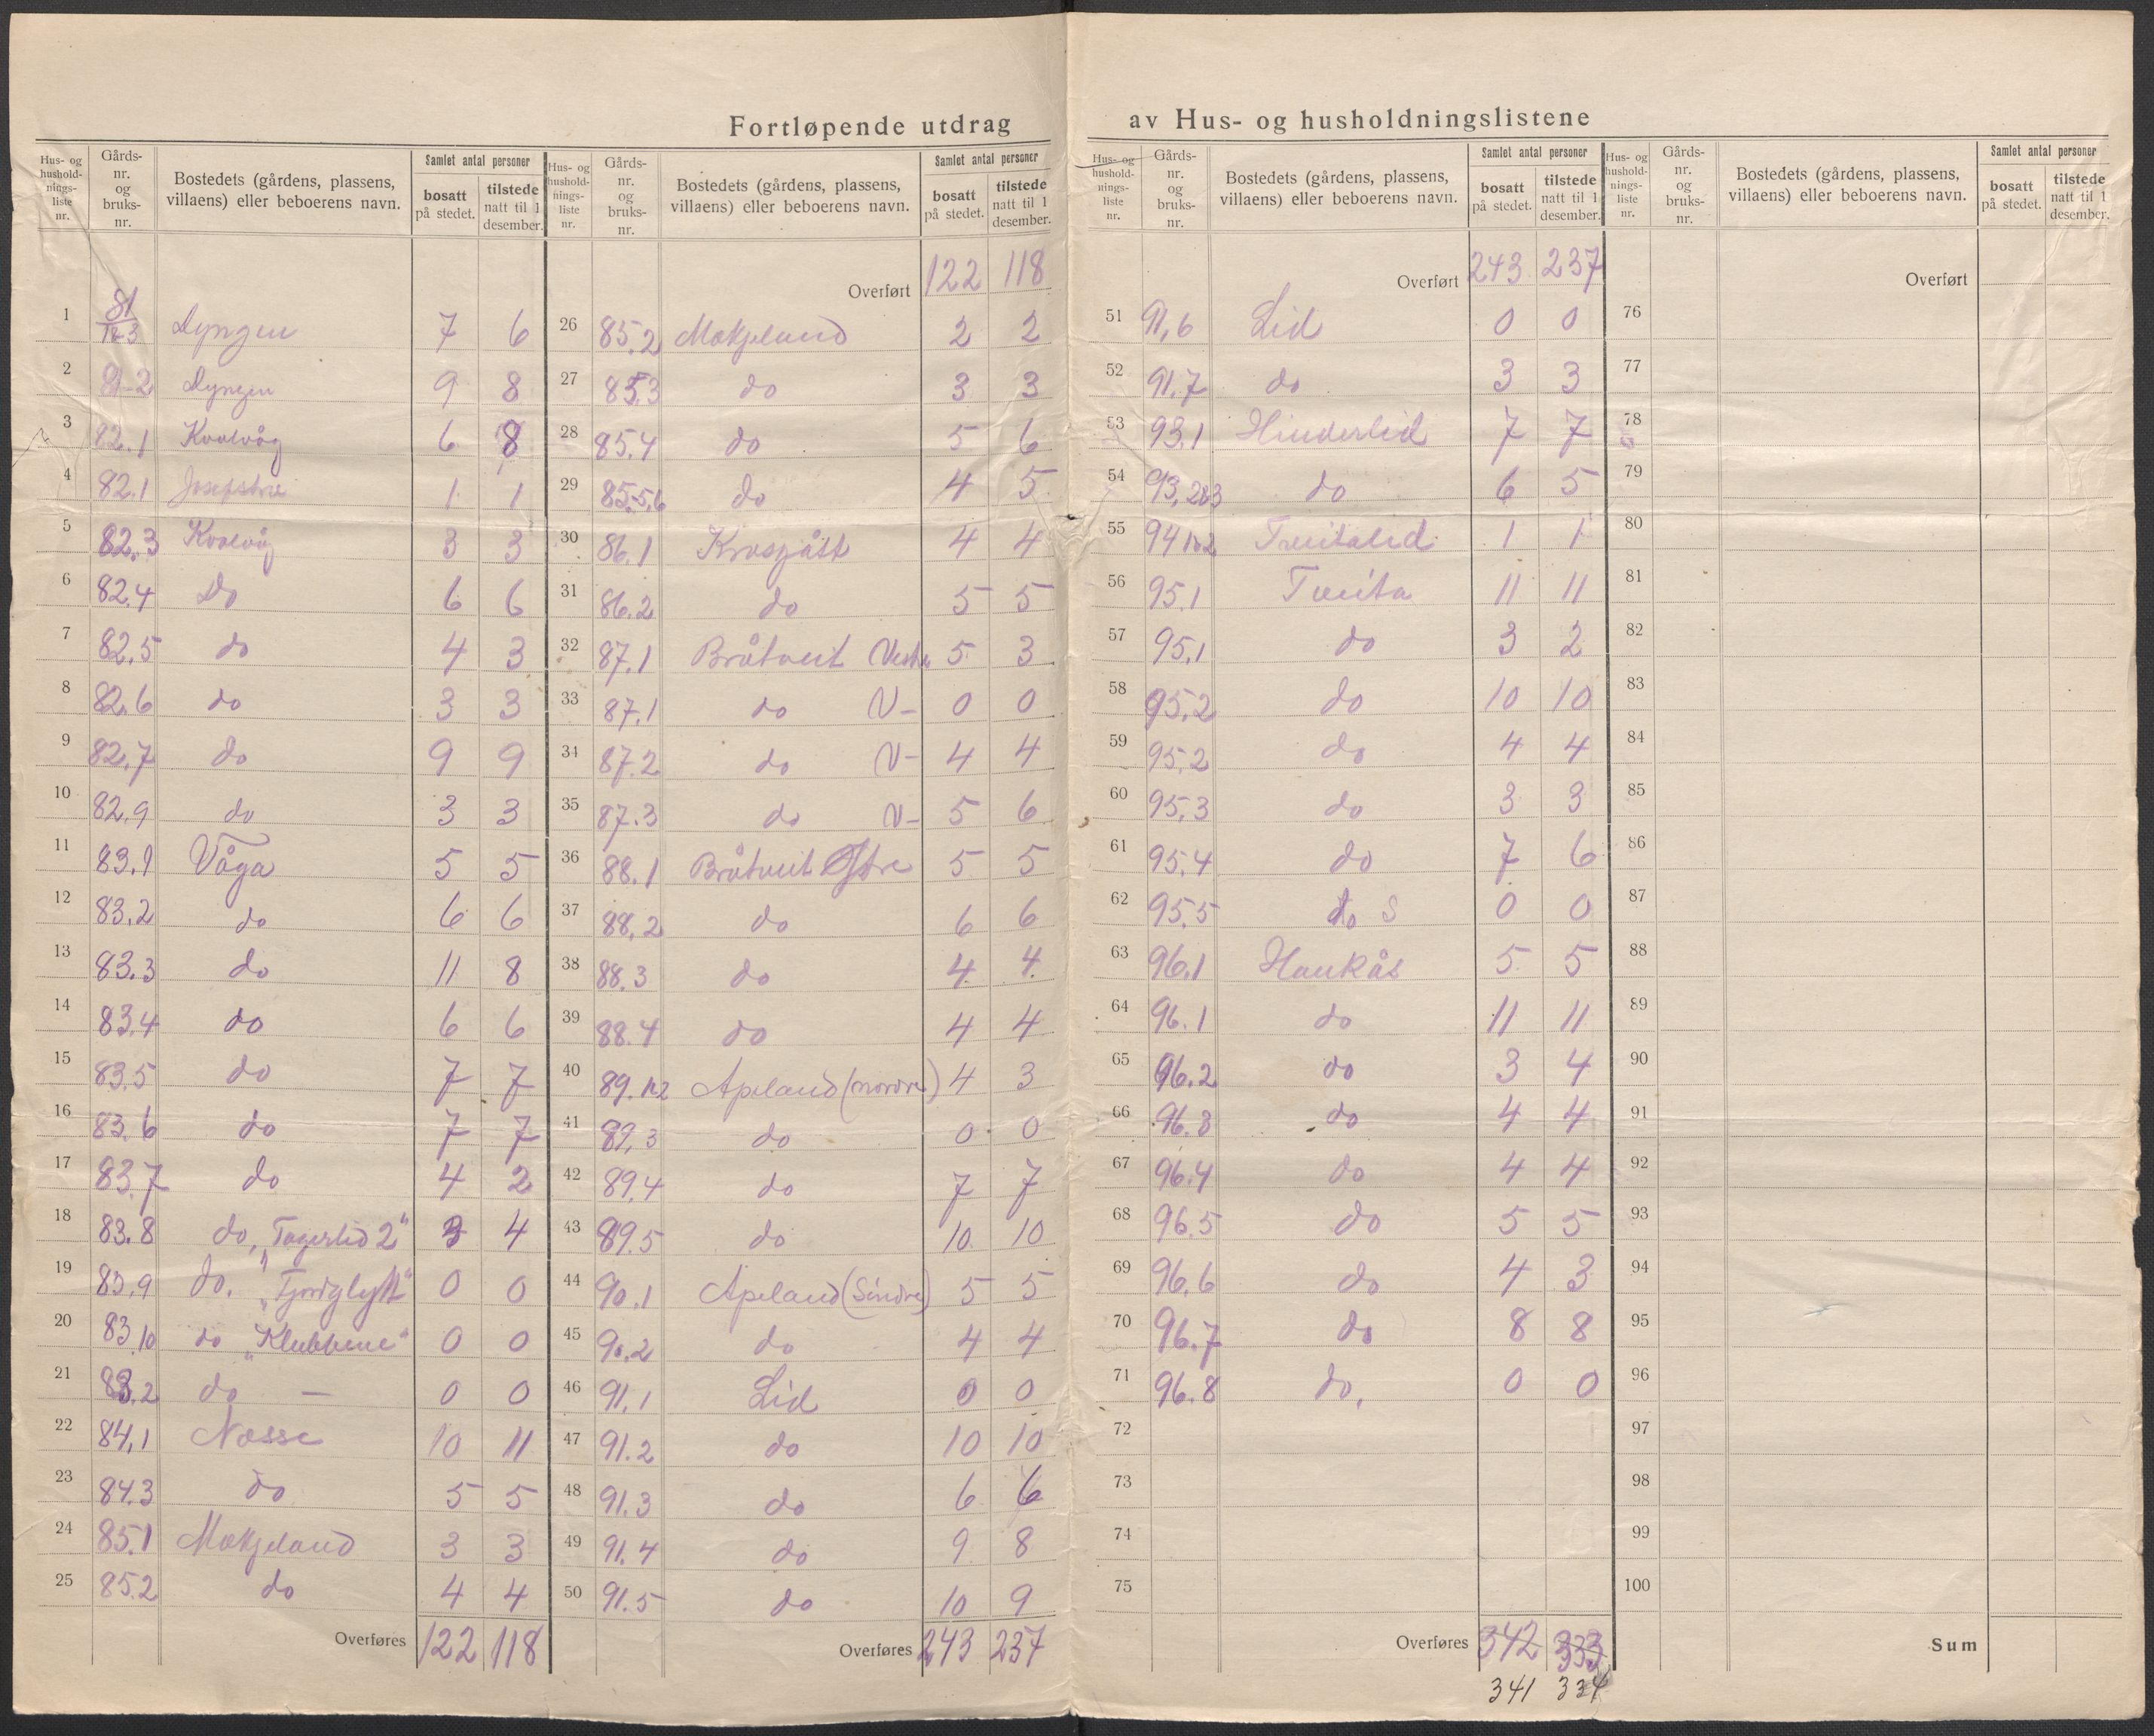 Fortløpende utdrag av Hus- og husholdningslistene
Hus- og hushold-nings-liste nr. Gårds-nr. og bruks-nr. Bostedets (gårdens, plassens, villaens) eller beboerens navn. Samlet antal personer bosatt på stedet. tilstede natt til 1 desember.
1 81 1&3 Dyngen 7 6
2 81-2 Dyngen 9 8
3 82.1 Kvalvåg 6 8
4 82.1 1 1
5 82.3 Kvalvåg 3 3
6 82.4 Do 6 6
7 82.5 do 4 3
8 82.6 do 3 3
9 82.7 do 9 9
10 82.9 do 3 3
11 83.1 Våga 5 5
12 83.2 do 6 6
13 83.3 do 11 8
14 83.4 do 6 6
15 83.5 do 7 7
16 83.6 do 7 7
17 83.7 do 4 2
18 83.8 do, „Fagerlid 2" 3 4
19 83.9 do. „Fjordglytt" 0 0
20 83.10 do „Klubbene" 0 0
21 83.2 do — 0 0
22 84.1 Næsse 10 11
23 84.3 do 5 5
24 85.1 Mækjeland 3 3
25 85.2 do 4 4
Overføres 122 118
Hus- og hushold-nings-liste nr. Gårds-nr. og bruks-nr. Bostedets (gårdens, plassens, villaens) eller beboerens navn. Samlet antal personer bosatt på stedet. tilstede natt til 1 desember.
Overført 122 118
26 85.2 Mækjeland 2 2
27 85.3 do 3 3
28 85.4 do 5 6
29 85.5,6 do 4 5
30 86.1 Krosgått 4 4
31 86.2 do 5 5
32 87.1 Bråtveit Vestre 5 3
33 87.1 do V- 0 0
34 87.2 do V- 4 4
35 87.3 do V- 5 6
36 88.1 Bråtveit Østre 5 5
37 88.2 do 6 6
38 88.3 do 4 4
39 88.4 do 4 4
40 89.1&2 Apeland (nordre) 4 3
41 89.3 do 0 0
42 89.4 do 7 7
43 89.5 do 10 10
44 90.1 Apeland (Søndre) 5 5
45 90.2 do 4 4
46 91.1 Lid 0 0
47 91.2 do 10 10
48 91.3 do 6 6
49 91.4 do 9 8
50 91.5 do 10 9
Overføres 243 237
Hus- og hushold-nings-liste nr. Gårds-nr. og bruks-nr. Bostedets (gårdens, plassens, villaens) eller beboerens navn. Samlet antal personer bosatt på stedet. tilstede natt til 1 desember.
Overført 243 237
51 91.6 Lid 0 0
52 91.7 do 3 3
53 93.1 Hinderlid 7 7
54 93.2&3 do 6 5
55 94.1&2 Tveitalid 1 1
56 95.1 Tveita 11 11
57 95.1 do 3 2
58 95.2 do 10 10
59 95.2 do 4 4
60 95.3 do 3 3
61 95.4 do 7 6
62 95.5 do S 0 0
63 96.1 Haukås 5 5
64 96.1 do 11 11
65 96.2 do 3 4
66 96.3 do 4 4
67 96.4 do 4 4
68 96.5 do 5 5
69 96.6 do 4 3
70 96.7 do 8 8
71 96.8 do. 0 0
72
73
74
75
Overføres 342 333
341 334
Hus- og hushold-nings-liste nr. Gårds-nr. og bruks-nr. Bostedets (gårdens, plassens, villaens) eller beboerens navn. Samlet antal personer bosatt på stedet. tilstede natt til 1 desember.
Overført
76
77
78
79
80
81
82
83
84
85
86
87
88
89
90
91
92
93
94
95
96
97
98
99
100
Sum